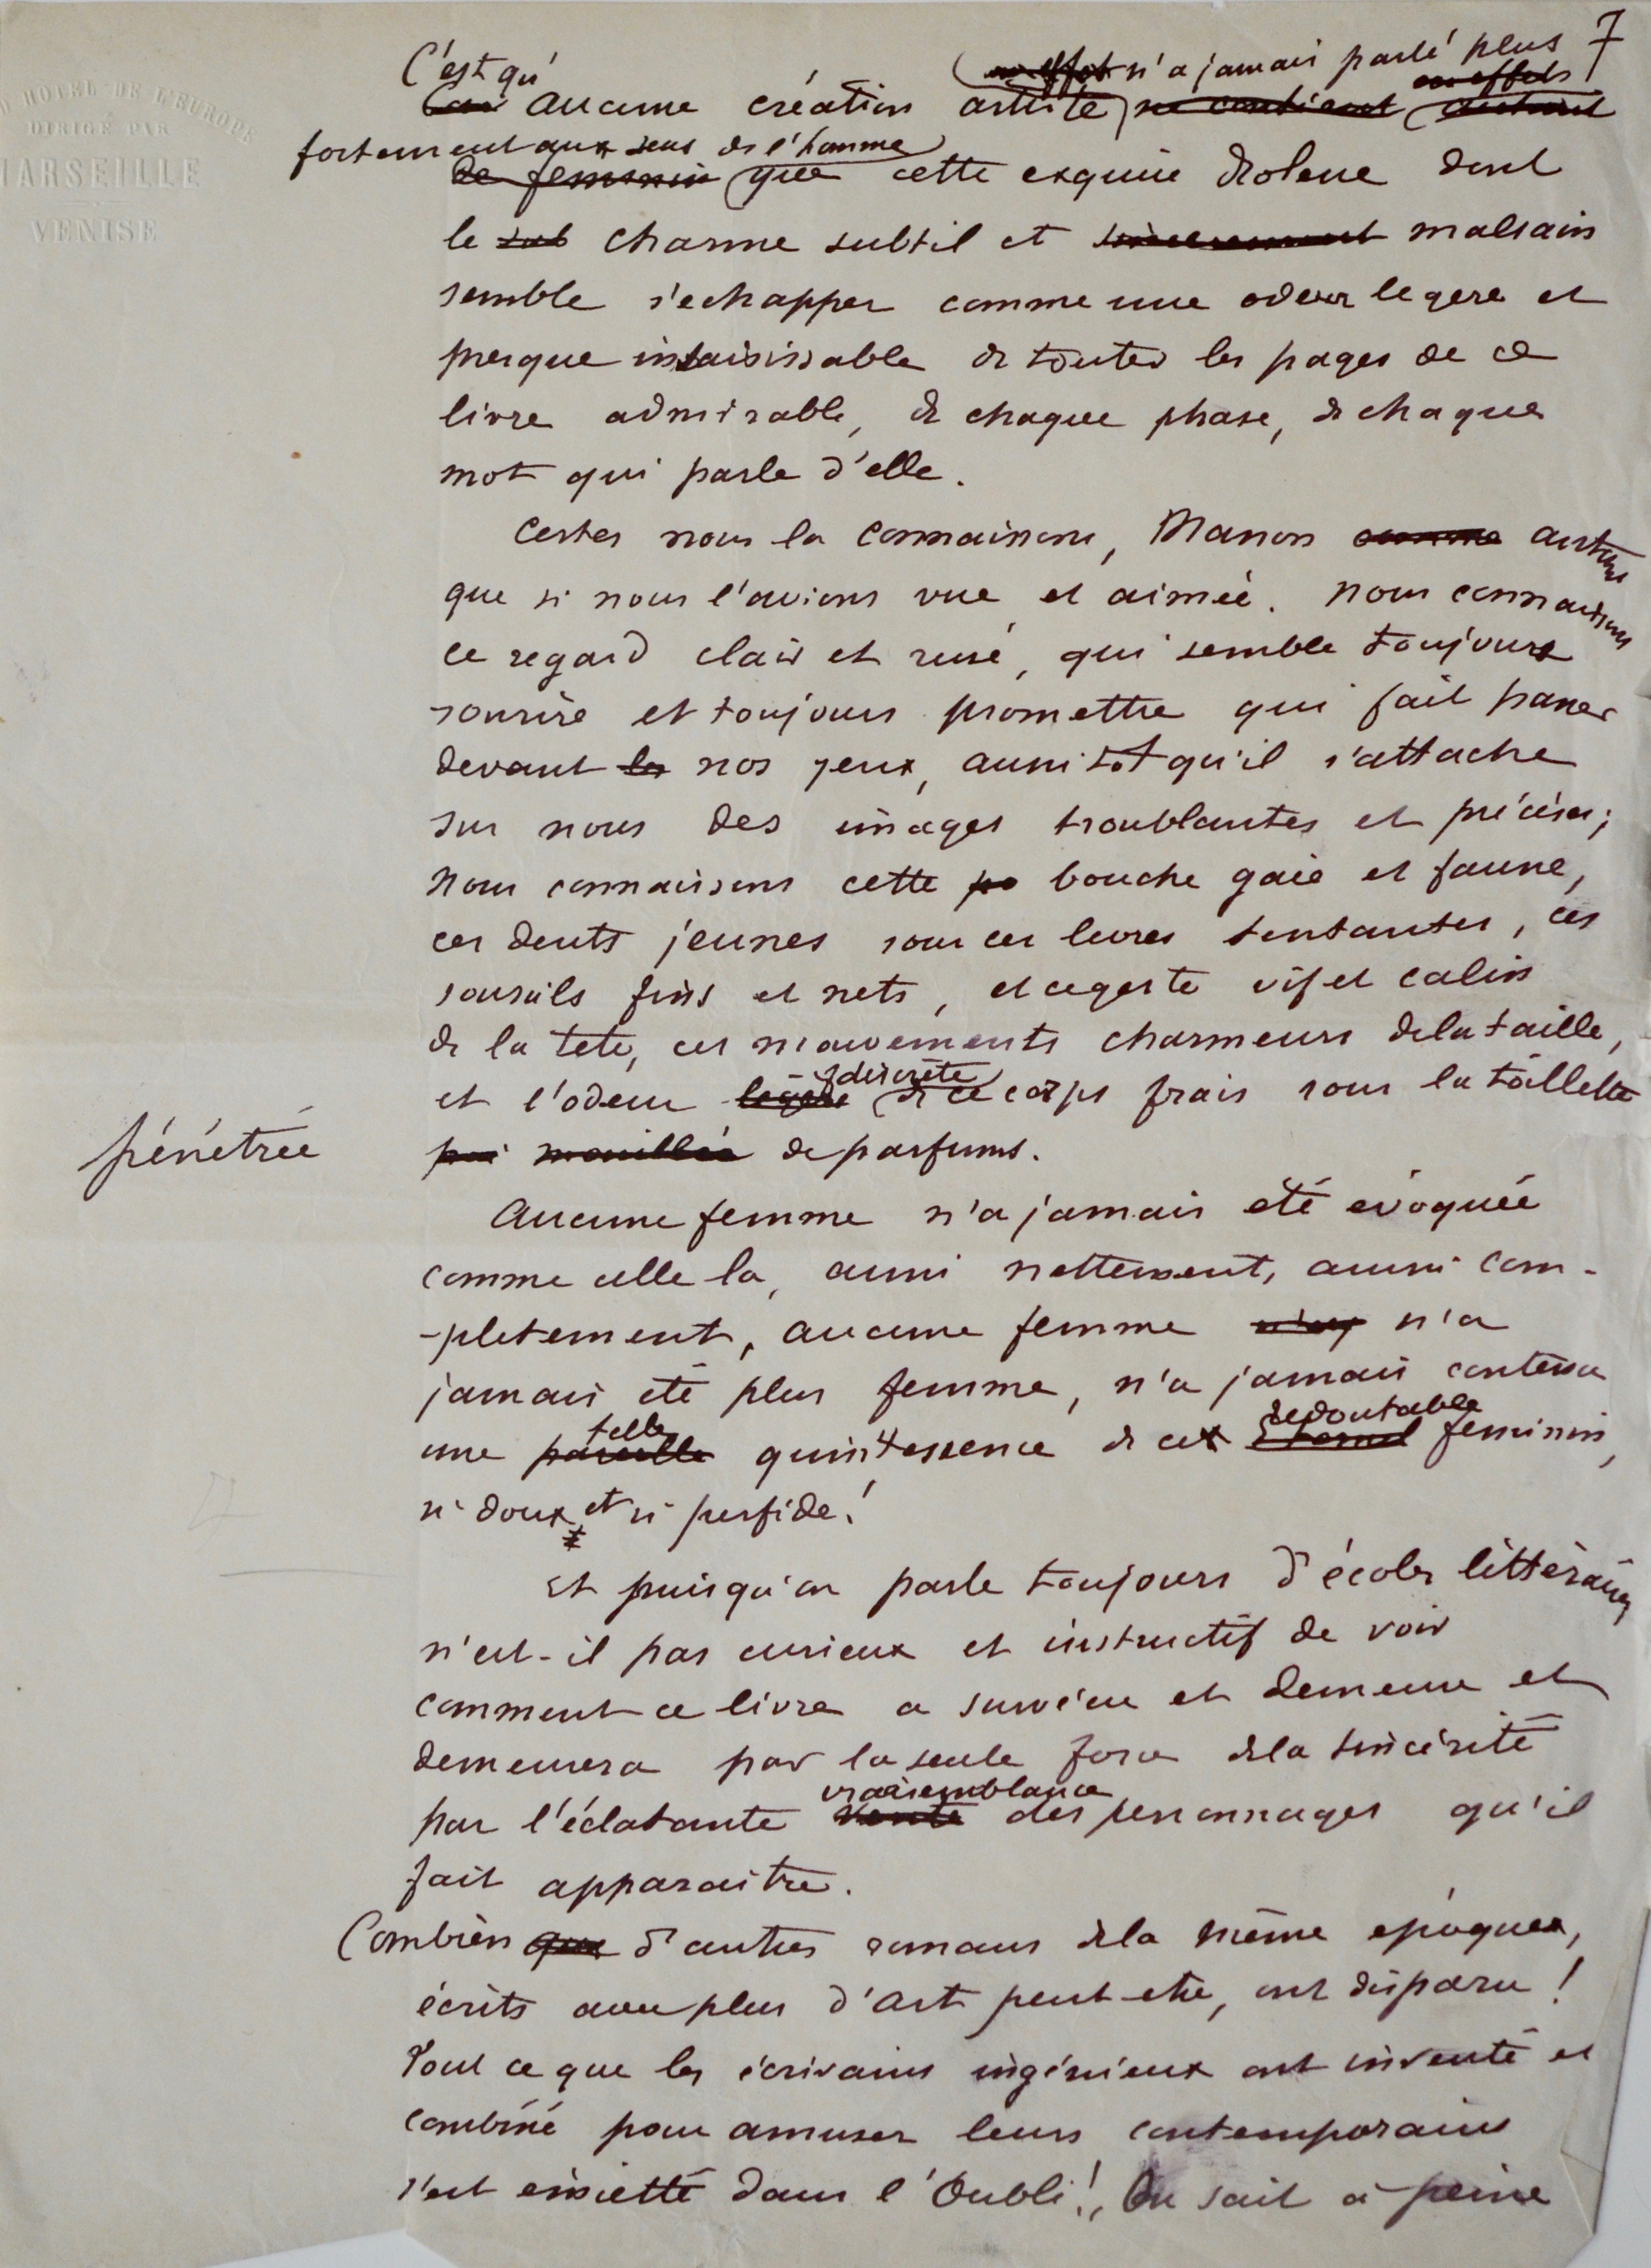 7
C'est qu'
n'a jamais parlé plus
en effet
Car aucune création artiste ne contient autant
fortement aux sens de l'homme
de feminin que cette exquise drolesse dont
le sub charme subtil et malsain
semble s'echapper comme une odeur legere et
presque insaisissable de toutes les pages de ce
livre admirable, de chaque phase, de chaque
mot qui parle d'elle.
Certes nous la connaissons, Manon comme autant
que si nous l'avions vue et aimée. Nous connaissons
ce regard clair et rusé, qui semble toujours
sourire et toujours promettre qui fait passer
devant les nos yeux, aussitot qu'il s'attache
sur nous des images troublantes et précises;
Nous connaissons cette bouche gaie et fausse,
ces dents jeunes sous ces levres tentantes, ces
sourcils fins et nets, et ce geste vif et calin
de la tete, ces mouvements charmeurs de la taille,
discrète
et l'odeur légère de ce corps frais sous la toillette
pénétrée
mouillée de parfums.
Aucune femme n'a jamais été evoquée
comme celle la, aussi nettement, aussi com-
-pletement, aucune femme n'a
jamais eté plus femme, n'a jamais contenu
telle redoutable
une pareille quintessence de cet eternel feminin,
si doux et si perfide!
Et puisqu'on parle toujours d'écoles littéraires
n'est-il pas curieux et instructif de voir
comment ce livre a survécu et demeure et
demeurera par la seule force de la sincérité
vraisemblance
par l'éclatante verité des personnages qu'il
fait apparaitre.
Combien que d'autres romans de la même epoque,
écrits avec plus d'art peut etre, ont disparu!
Tout ce que les écrivains ingénieux ont inventé et
combiné pour amuser leurs contemporains
s'est emietté dans l'Oubli! On sait à peine
HOTEL DE L'EUROPE
DIRIGÉ PAR
MARSEILLE
VENISE